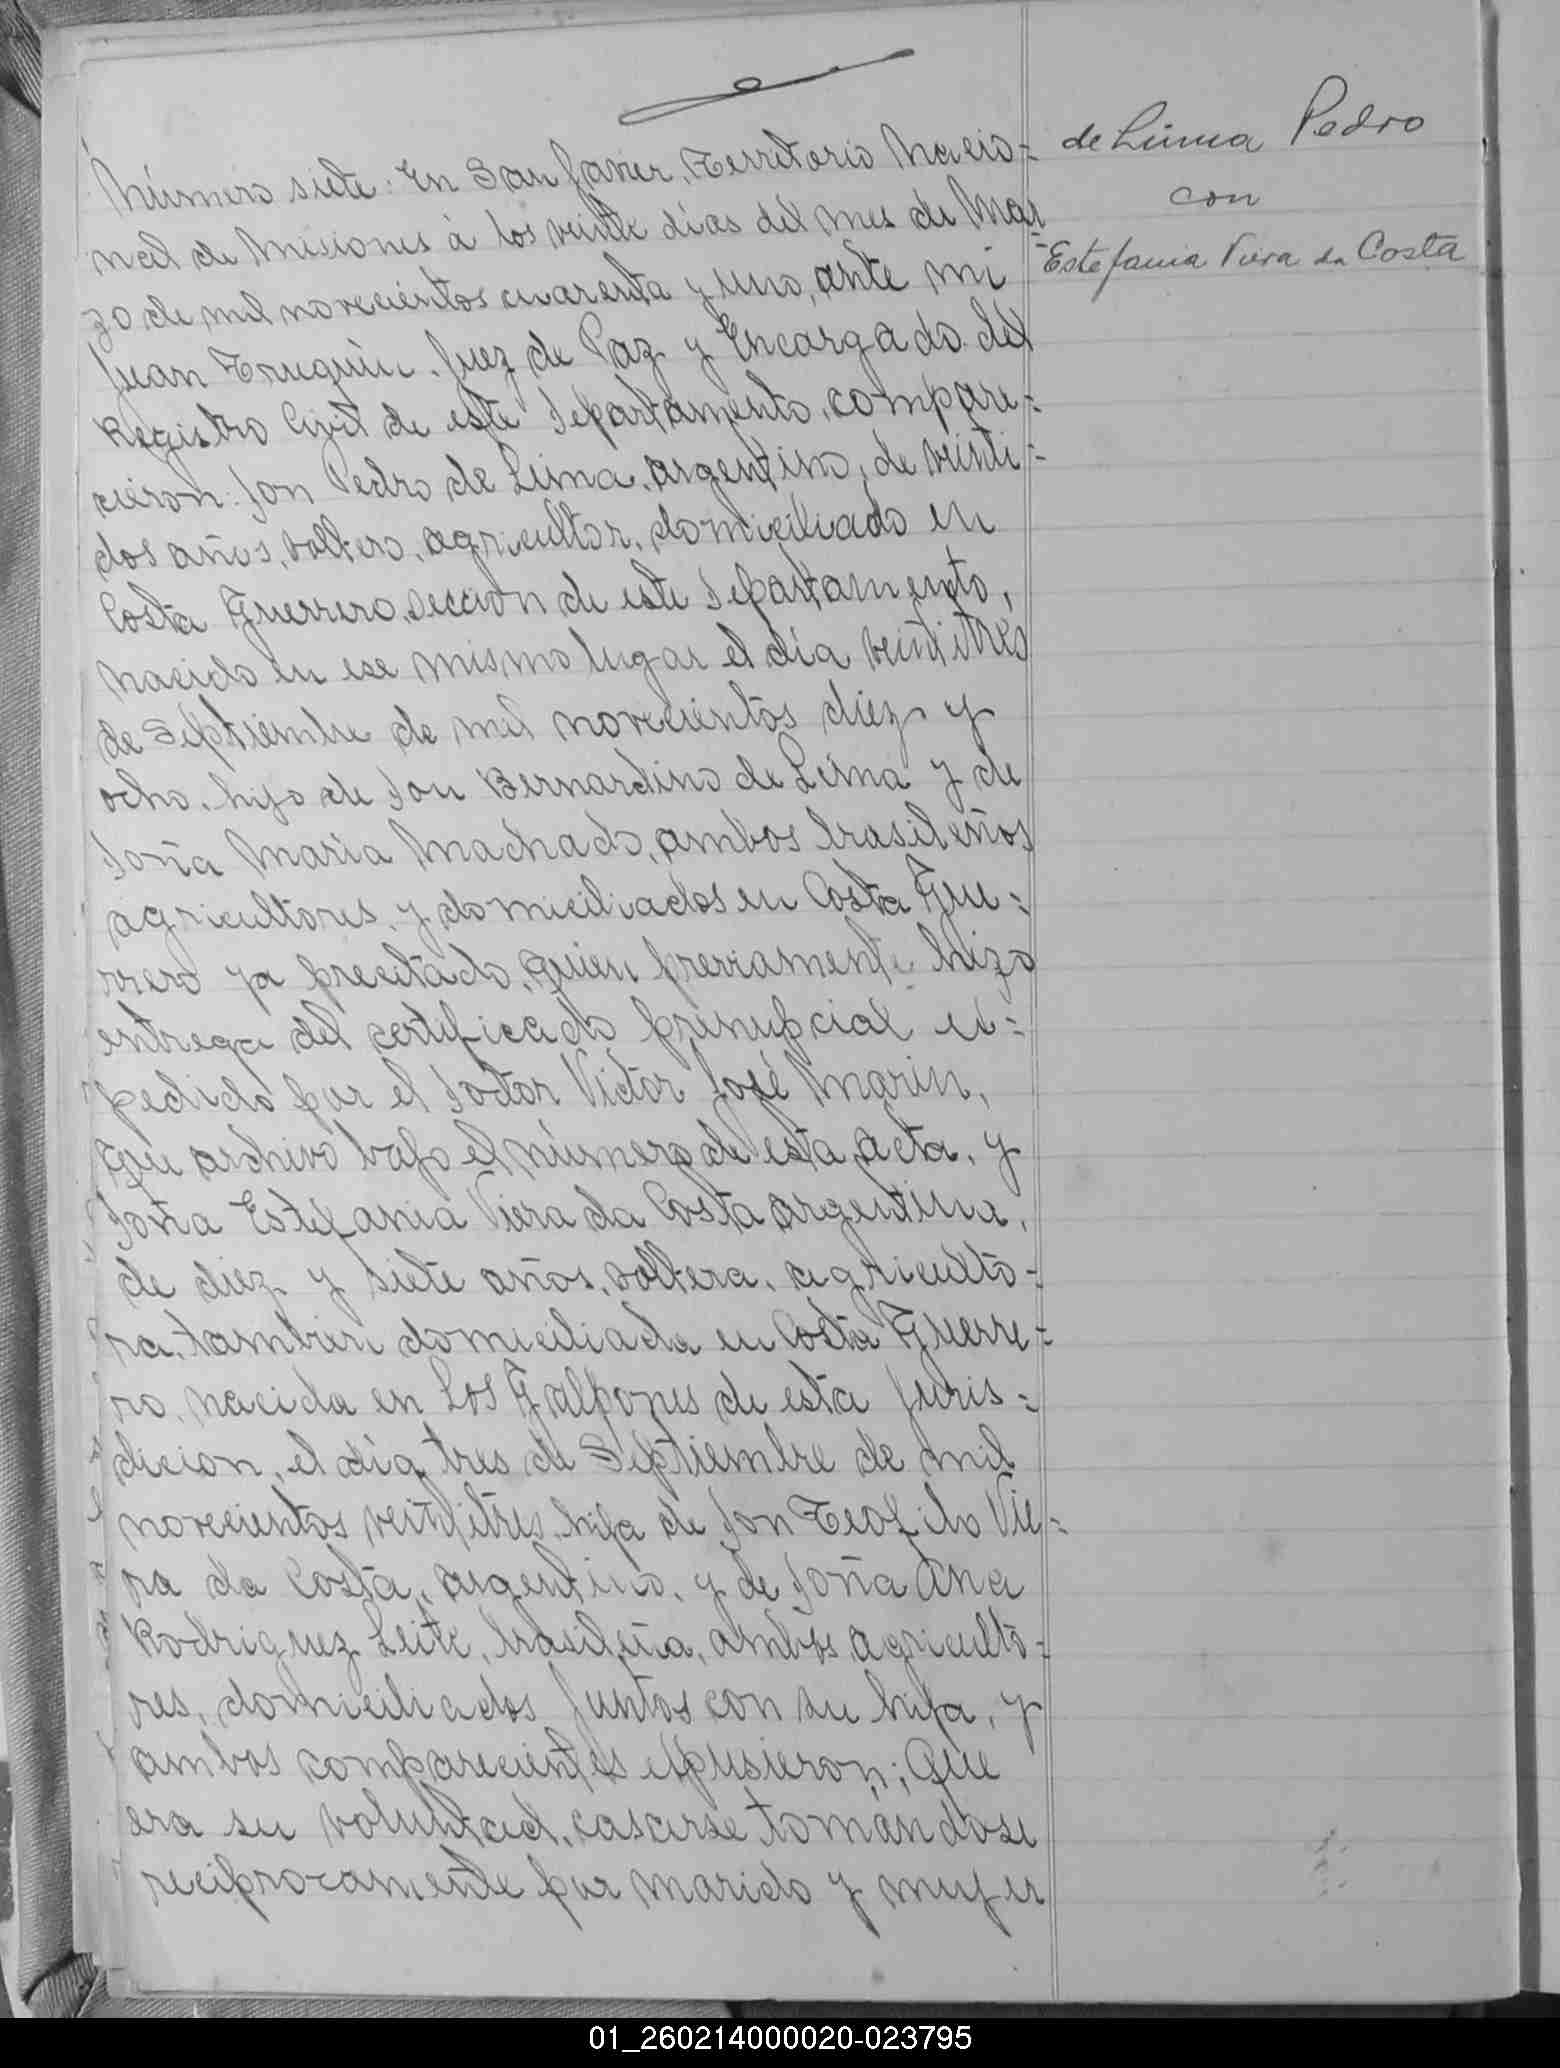 de Lima Pedro
con
Estefania Viera da Costa
Número siete: En San Javier, Territorio Nacio=
nal de Misiones á los veinte días del mes de Mar=
zo de mil novecientos cuarenta y uno, ante mi
Juan Truquin, Juez de Paz y Encargado del
Registro Civil de este Departamento, compare=
cieron: Don Pedro de Lima, argentino, de veinti=
dos años, soltero, agricultor, domiciliado en
Costa Guerrero, seccion de este Departamento,
nacido en ese mismo lugar el día veintitrés
de Septiembre de mil novecientos diez y
ocho, hijo de Don Bernardino de Lima y de
Doña María Machado, ambos brasileños
agricultores, y domiciliados en Costa Gue=
rrero ya precitado, quien previamente hizo
entrega del certificado prenupcial ex=
pedido por el Doctor Víctor José Marin,
que archivo bajo el número de esta acta, y
Doña Estefania Viera da Costa argentina,
de diez y siete años, soltera, agriculto=
ra, tambien domiciliada en Costa Guerre=
ro, nacida en Los Galpones de esta Juris=
dicion, el día tres de Septiembre de mil
novecientos veintitrés, hija de Don Teofilo Vie=
ra da Costa, argentino, y de Doña Ana
Rodriguez Leite, brasileña, ambos agriculto=
res, domiciliados juntos con su hija, y
ambos comparecientes expusieron; Que
era su voluntad, casarse tomándose
reciprocamente por marido y mujer
01_260214000020-023795